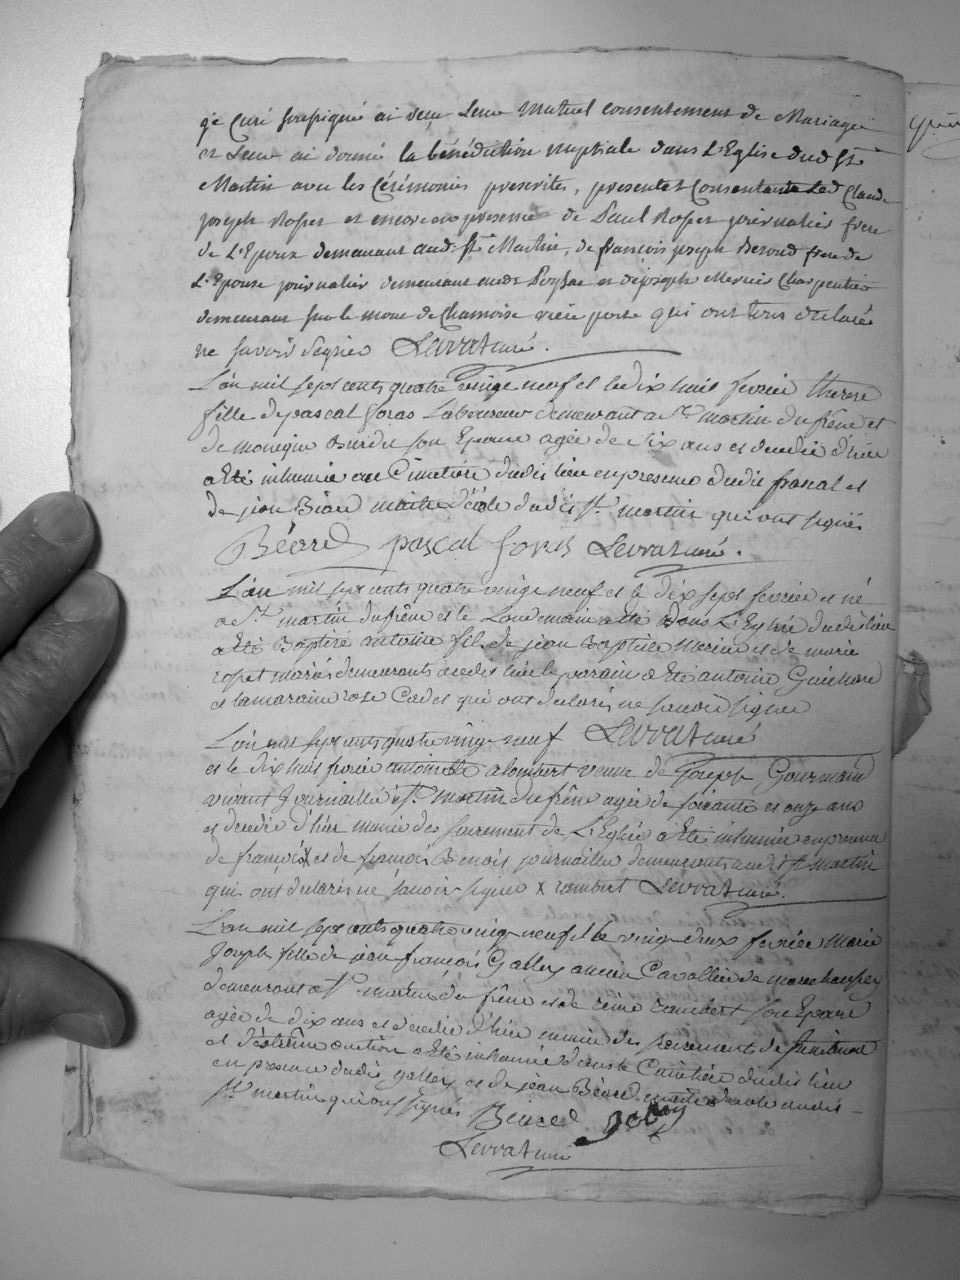 je Curé soussigné ai reçu Leur Mutuel consentement de Mariage
et Leur ai donné la bénédiction nuptiale dans L'Eglise dud St
Martin avec les Cérémonies prescrites, présent et Consentant Led Claude
joseph Rosset et encore en presence de Paul Rosset journalier frere
de L'Epoux demeurant aud. St Martin, de françois joseph Beroud frere de
L'Epouse journalier demeurant aud et de joseph Mercier Charpentier
demeurant sur le mont de Chamoise qui ont tous declaré
ne savoir signer Levrat curé.
L'an mil sept cents quatre vingt neuf et le dix huit fevrie therese
fille de pascal foras Laboureur demeurant a St martin du frêne et
de monique Burdet son Epouse agée de six ans et decedée d'hier
a Eté inhumée au Cimetière dudit lieu en presence dudit pascal et
de jean Béard maitre d'école dudit St martin qui ont signés
Béard pascal foras Levrat curé.
L'an mil sept cents quatre vingt neuf et le dix sept fevrier est né
a St martin du frêne et le Landemain a eté dans L'Eglise dudit lieu
a eté Baptisé antoine fils de jean Baptiste Mercier et de marie
rosset mariés demeurants audit lieu le parain a Eté antoine
et la maraine rose Cadet qui ont declarés ne savoir signer
L'an mil sept cents quatre vingt neuf Levrat curé
et le dix huit fevrie antoinette alombert veuve de Joseph Gourmand
vivant Journaillé a St martin du frêne agée de soixante et onze ans
et decedée d'hier munie des sacrement de L'Eglise a Eté inhumée en presence
de françois x et de françois Benoit journaillers demeurants audit St martin
qui ont declarés ne savoir signer x rambert Levrat curé.
L'an mil sept cents quatre vingt neuf et le vingt deux fevrier Marie
Joseph fille de jean françois Galley ancien Cavallier de marechaussey
demeurant a St martin du frêne et de reine rambert son Epouse
agée de dix ans et decedée d'hier munie des sacrements de penitence
et d'extrême onction a Eté inhumée dans le Cimetière dudit lieu
en presence dudit galley et de jean Béard maitre d'ecole audit
St martin qui ont signés Beard galley
Levrat curé